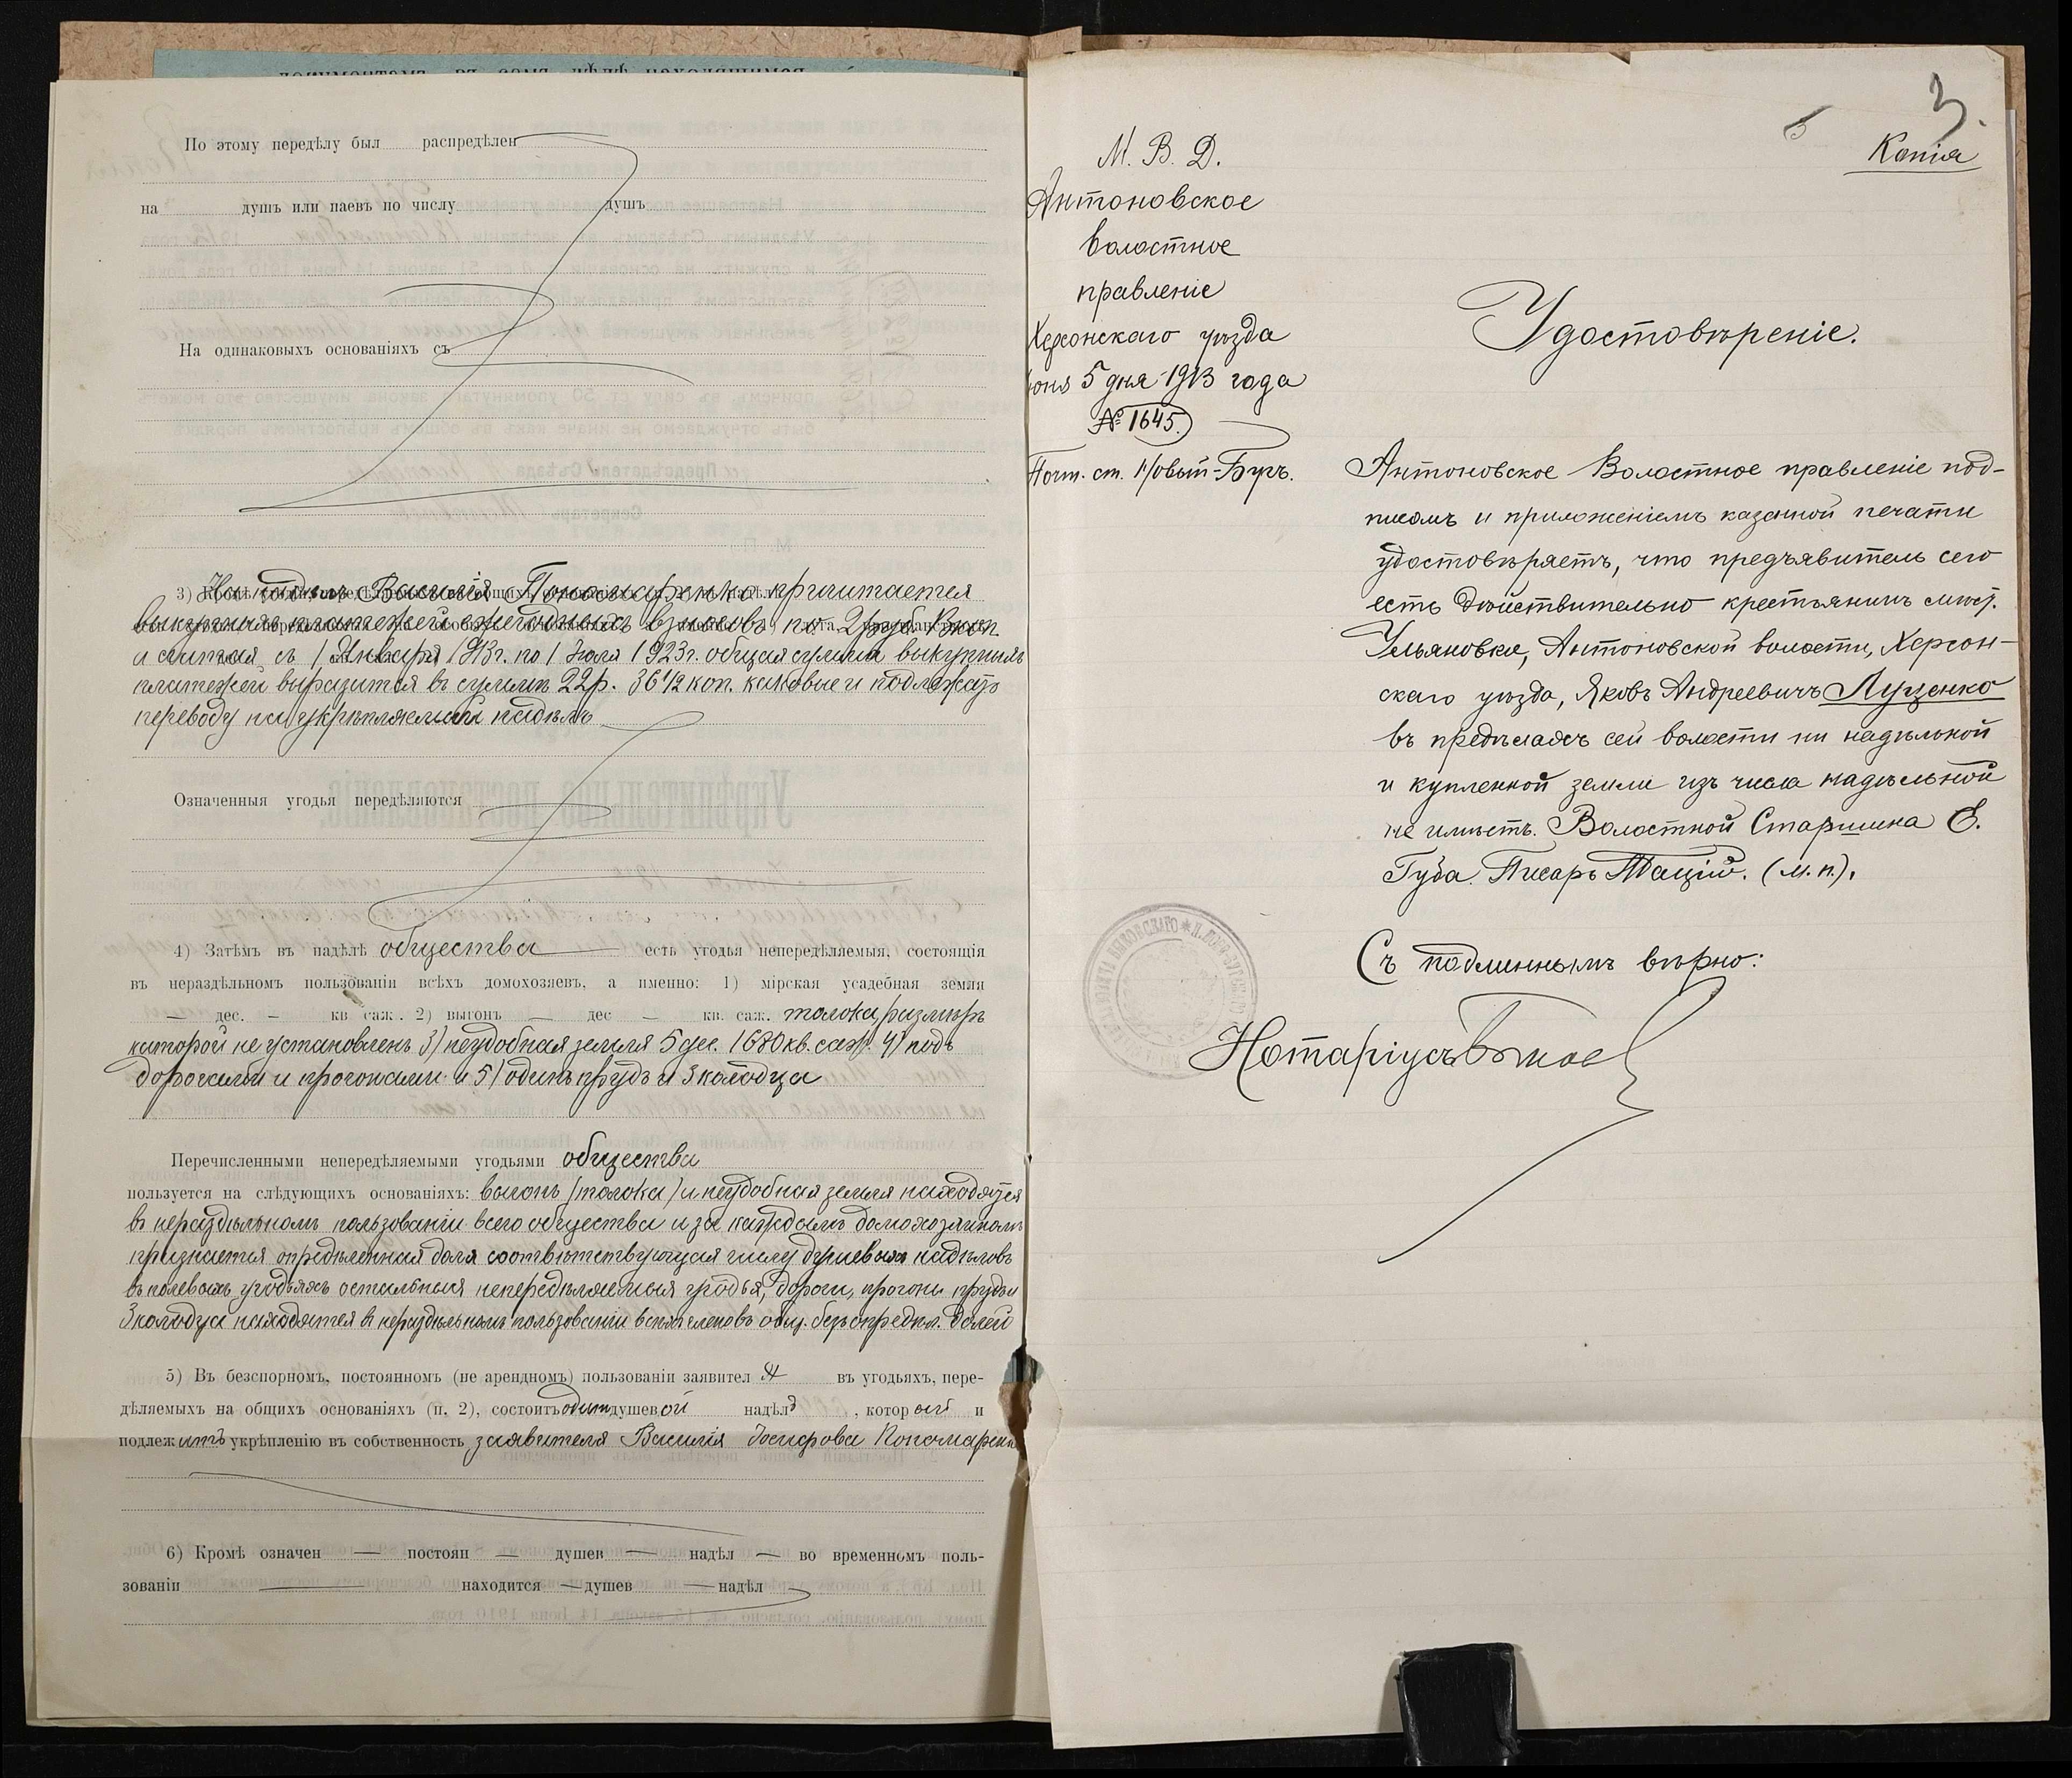 документамъ, въ семъ дѣлѣ находящимся
По этому передѣлу был распредѣлен
на душъ или паевъ по числу душъ
На одинаковыхъ основаніяхъ съ
3)
На надѣлъ Василія Пономаренко причитается
выкупныхъ платежей ежегодныхъ взносовъ по 2 руб. коп.
и считая съ 1 Января 1913г. по 1 Июля 1923г. общая сумма выкупныхъ
платежей выразится въ суммѣ 22р. 36 1/2 коп. каковые и подлежатъ
переводу на укрѣпляемый надѣлъ
Означенныя угодья передѣляются
4) Затѣмъ въ надѣлѣ общества есть угодья непередѣляемыя, состоящія
въ нераздѣльномъ пользованіи всѣхъ домохозяевъ, а именно: 1) мірская усадебная земля
— дес. — кв саж. 2) выгонъ — дес — кв. саж. толока, размѣръ
которой не установленъ 3) неудобная земля 5 дес. 1680 кв. саж. 4) подъ
дорогами и прогонами и 5) одинъ прудъ и 3 колодца
Перечисленными непередѣляемыми угодьями общества
пользуется на слѣдующихъ основаніяхъ: выгонъ (толока) и неудобная земля находятся
въ нераздѣльномъ пользованіи всего общества и за каждымъ домохозяиномъ
признается опредѣленная доля соотвѣтствующая числу душевыхъ надѣловъ
въ полевыхъ угодьяхъ остальныя непередѣляемыя угодья, дороги, прогоны прудъ и
3 колодца находятся въ нераздѣльномъ пользованіи всѣхъ членовъ общ. безъ опредѣл. долей
5) Въ безспорномъ, постоянномъ (не арендномъ) пользованіи заявител я въ угодьяхъ, пере-
дѣляемыхъ на общихъ основаніяхъ (п. 2), состоитъ одинъ душевой надѣлъ, который и
подлежитъ укрѣпленію въ собственность заявителя Василія Іосифова Пономаренк
6) Кромѣ означен — постоян — душев — надѣл — во временномъ поль-
зованіи находится — душев — надѣл
3.
Копія
М. В. Д.
Антоновское
волостное
правленіе
Херсонскаго уѣзда
юня 5 дня 1913 года
№ 1645.
Почт. ст. Новый-Бугъ.
Удостовѣреніе.
Антоновское Волостное правленіе под-
писомъ и приложеніемъ казенной печати
удостовѣряетъ, что предъявитель сего
есть дѣйствительно крестьянинъ мѣст.
Ульяновки, Антоновской волости, Херсон-
скаго уѣзда, Яковъ Андреевичъ Луценко
въ предѣлахъ сей волости ни надѣльной
и купленной земли изъ числа надѣльной
не имѣетъ. Волостной Старшина Е.
Губа. Писарь (м. п.).
Съ подлиннымъ вѣрно:
Нотаріусъ